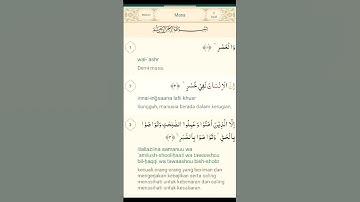 Masa
بِسْمِ اللّٰهِ الرَّحْمٰنِ الرَّحِيْمِ
1
وَالْعَصْرِۙ ﴿١﴾
wal-'ashr
Demi masa.
2
اِنَّ الْاِنْسَانَ لَفِيْ خُسْرٍۙ ﴿٢﴾
innal-ingsaana lafii khusr
Sungguh, manusia berada dalam kerugian,
3
اِلَّا الَّذِيْنَ اٰمَنُوْا وَعَمِلُوا الصّٰلِحٰتِ وَتَوَاصَوْا
بِالْحَقِّ ەۙ وَتَوَاصَوْا بِالصَّبْرِ ﴿٣﴾
illallaziina aamanuu wa
'amilush-shoolihaati wa tawaashou
bil-haqqi wa tawaashou bish-shobr
kecuali orang-orang yang beriman dan
mengerjakan kebajikan serta saling
menasihati untuk kebenaran dan saling
menasihati untuk kesabaran.